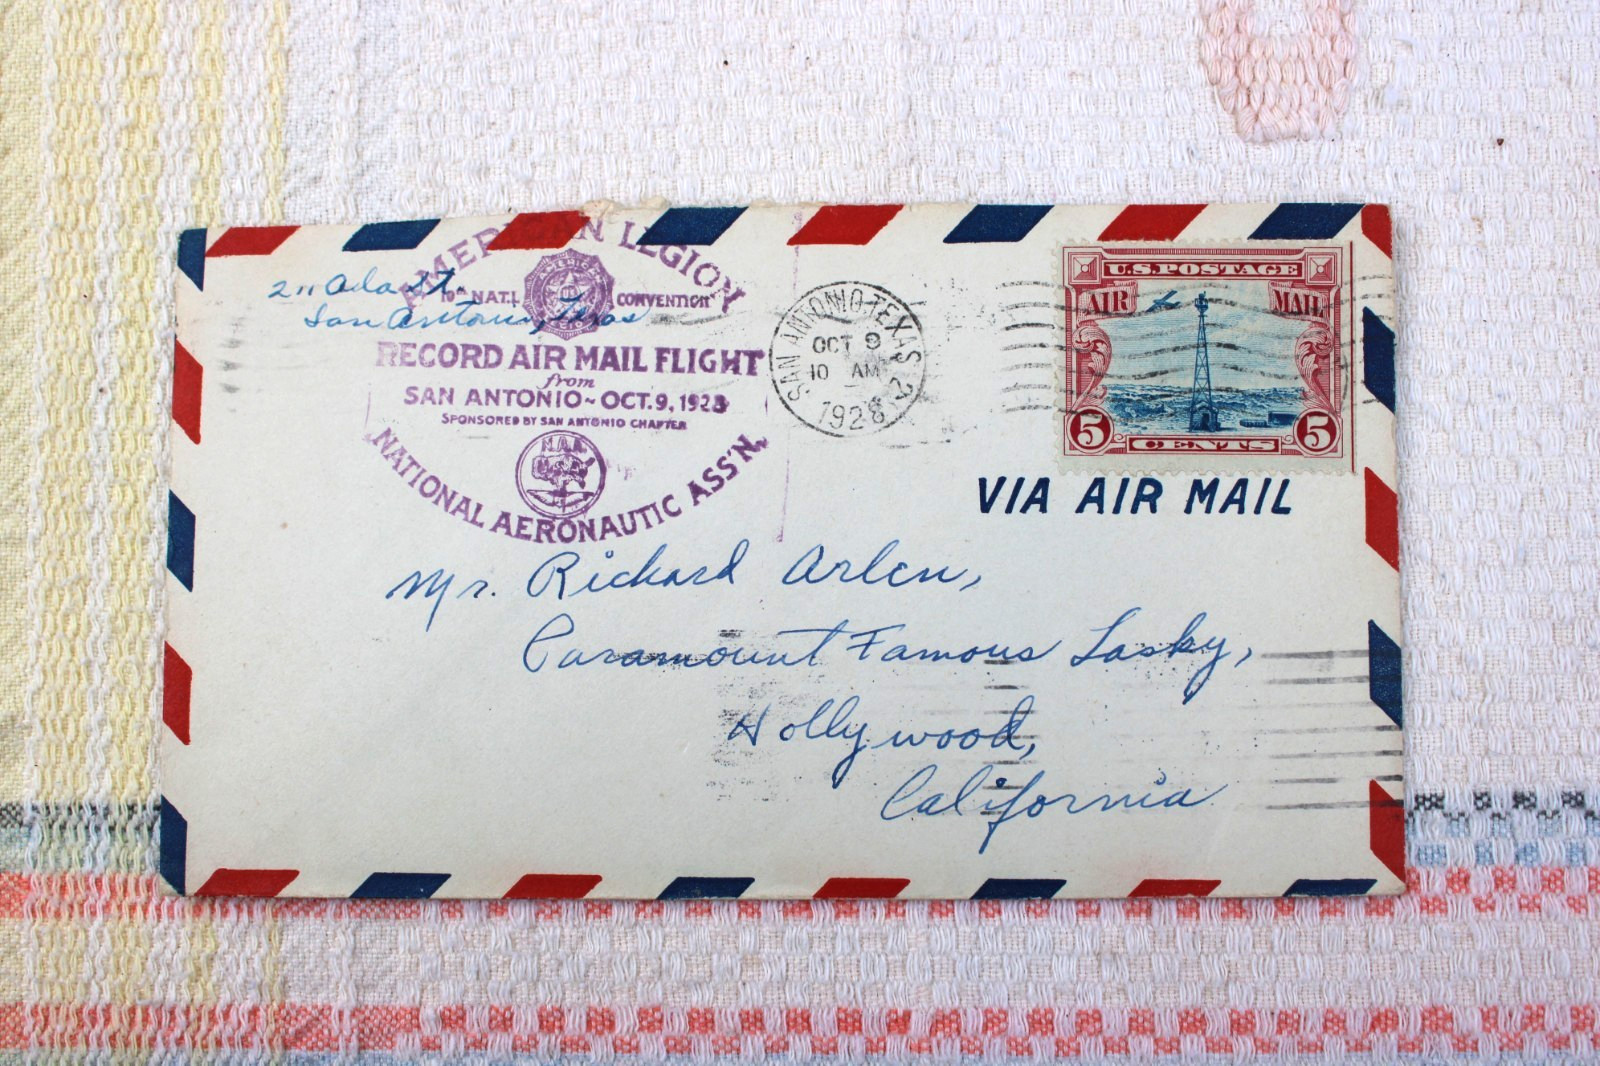 211 Ada St.
San Antonio, Texas
AMERICAN LEGION
10TH NAT'L CONVENTION
RECORD AIR MAIL FLIGHT
from
SAN ANTONIO ~ OCT. 9, 1928
SPONSORED BY SAN ANTONIO CHAPTER
N.A.A.
U.S.A.
NATIONAL AERONAUTIC ASS'N.
SAN ANTONIO, TEXAS 2
OCT 9
10 AM
1928
U.S. POSTAGE
AIR MAIL
5 CENTS 5
VIA AIR MAIL
Mr. Richard Arlen,
Paramount Famous Lasky,
Hollywood,
California